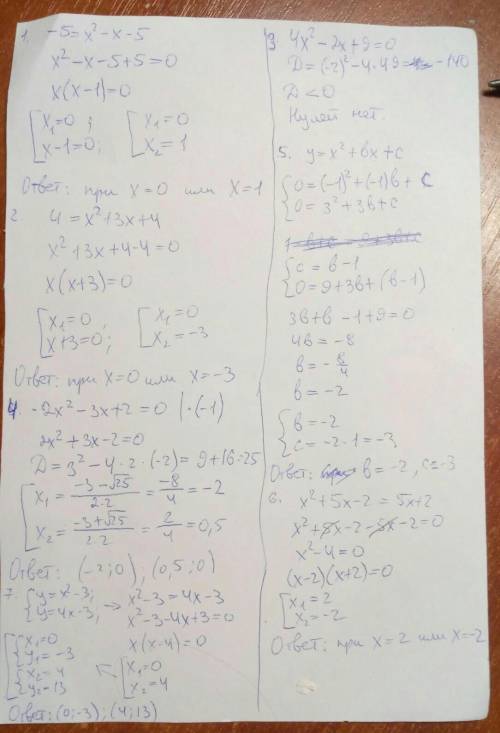 1. -5=x²-x-5
x²-x-5+5=0
x(x-1)=0
[x₁=0; x-1=0; [x₁=0 x₂=1
Ответ: при x=0 или x=1
2 4=x²+3x+4
x²+3x+4-4=0
x(x+3)=0
[x₁=0, x+3=0; [x₁=0 x₂=-3
Ответ: при x=0 или x=-3
4. -2x²-3x+2=0 |·(-1)
2x²+3x-2=0
D=3²-4·2·(-2)=9+16=25
[x₁= (-3-√25)/(2·2) = -8/4 = -2
x₂= (-3+√25)/(2·2) = 2/4 = 0,5
Ответ: (-2;0); (0,5;0)
7. {y=x²-3; y=4x-3; → x²-3=4x-3
x²-3-4x+3=0
x(x-4)=0
[x₁=0 x₂=4
[{x₁=0 y₁=-3
{x₂=4 y₂=13
Ответ: (0;-3); (4;13)
3 4x²-2x+9=0
D=(-2)²-4·4·9= -140
D<0
Нулей нет.
5. y=x²+bx+c
{0=(-1)²+(-1)b+c
0=3²+3b+c
{c=b-1
0=9+3b+(b-1)
3b+b-1+9=0
4b=-8
b=-8/4
b=-2
{b=-2
c=-2-1=-3
Ответ: b=-2, c=-3
6. x²+5x-2=5x+2
x²+5x-2-5x-2=0
x²-4=0
(x-2)(x+2)=0
[x₁=2
x₂=-2
Ответ: при x=2 или x=-2